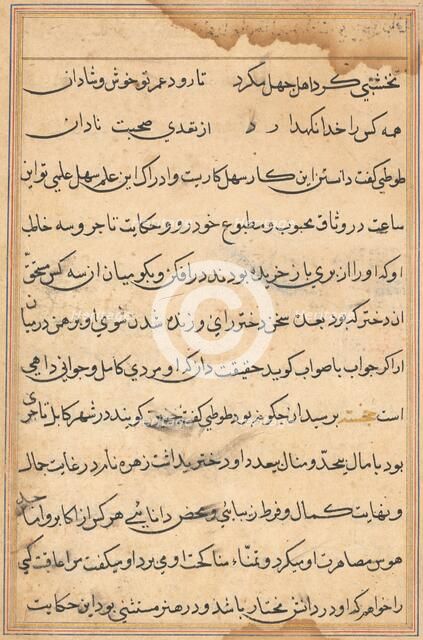 نخشبی گرد اهل جهل مگرد تا رود عمر تو خوش و شادان
همه کس را خدا نگهدارد از تعدی صحبت نادان
طوطی گفت دانستن این کار سهل کاریست و ادراک این علم سهل علمی تو این
ساعت در وثاق محبوب و مطبوع خود رو و حکایت تاجر و سه خاطب
او که او را از پری باز خریده بودند در افکن و بگو میان آن سه کس مستحق
آن دختر که بود بعد سخن دختر رای و زنده شدن شوی او برهمن در میان
ار اگر جواب با صواب گوید حقیقت دان که او مردی کامل و جوانی داهی
است خجسته پرسید آن چگونه بود طوطی گفت چنین گویند در شهر کابل تاجری
بود با مال بیحد و منال بیعدد او دختری داشت زهره نام در غایت جمال
و نهایت کمال و فرط زیبائی و محض دانائی هر کس از اکابر و اماجد
هوس مصاهرت او میکرد و تمنّاء مناکحت او می برد او میگفت مرا عاقبت کسی
را خواهم که او در دانش مختار باشد و در هنر مستثنی بود این حکایت